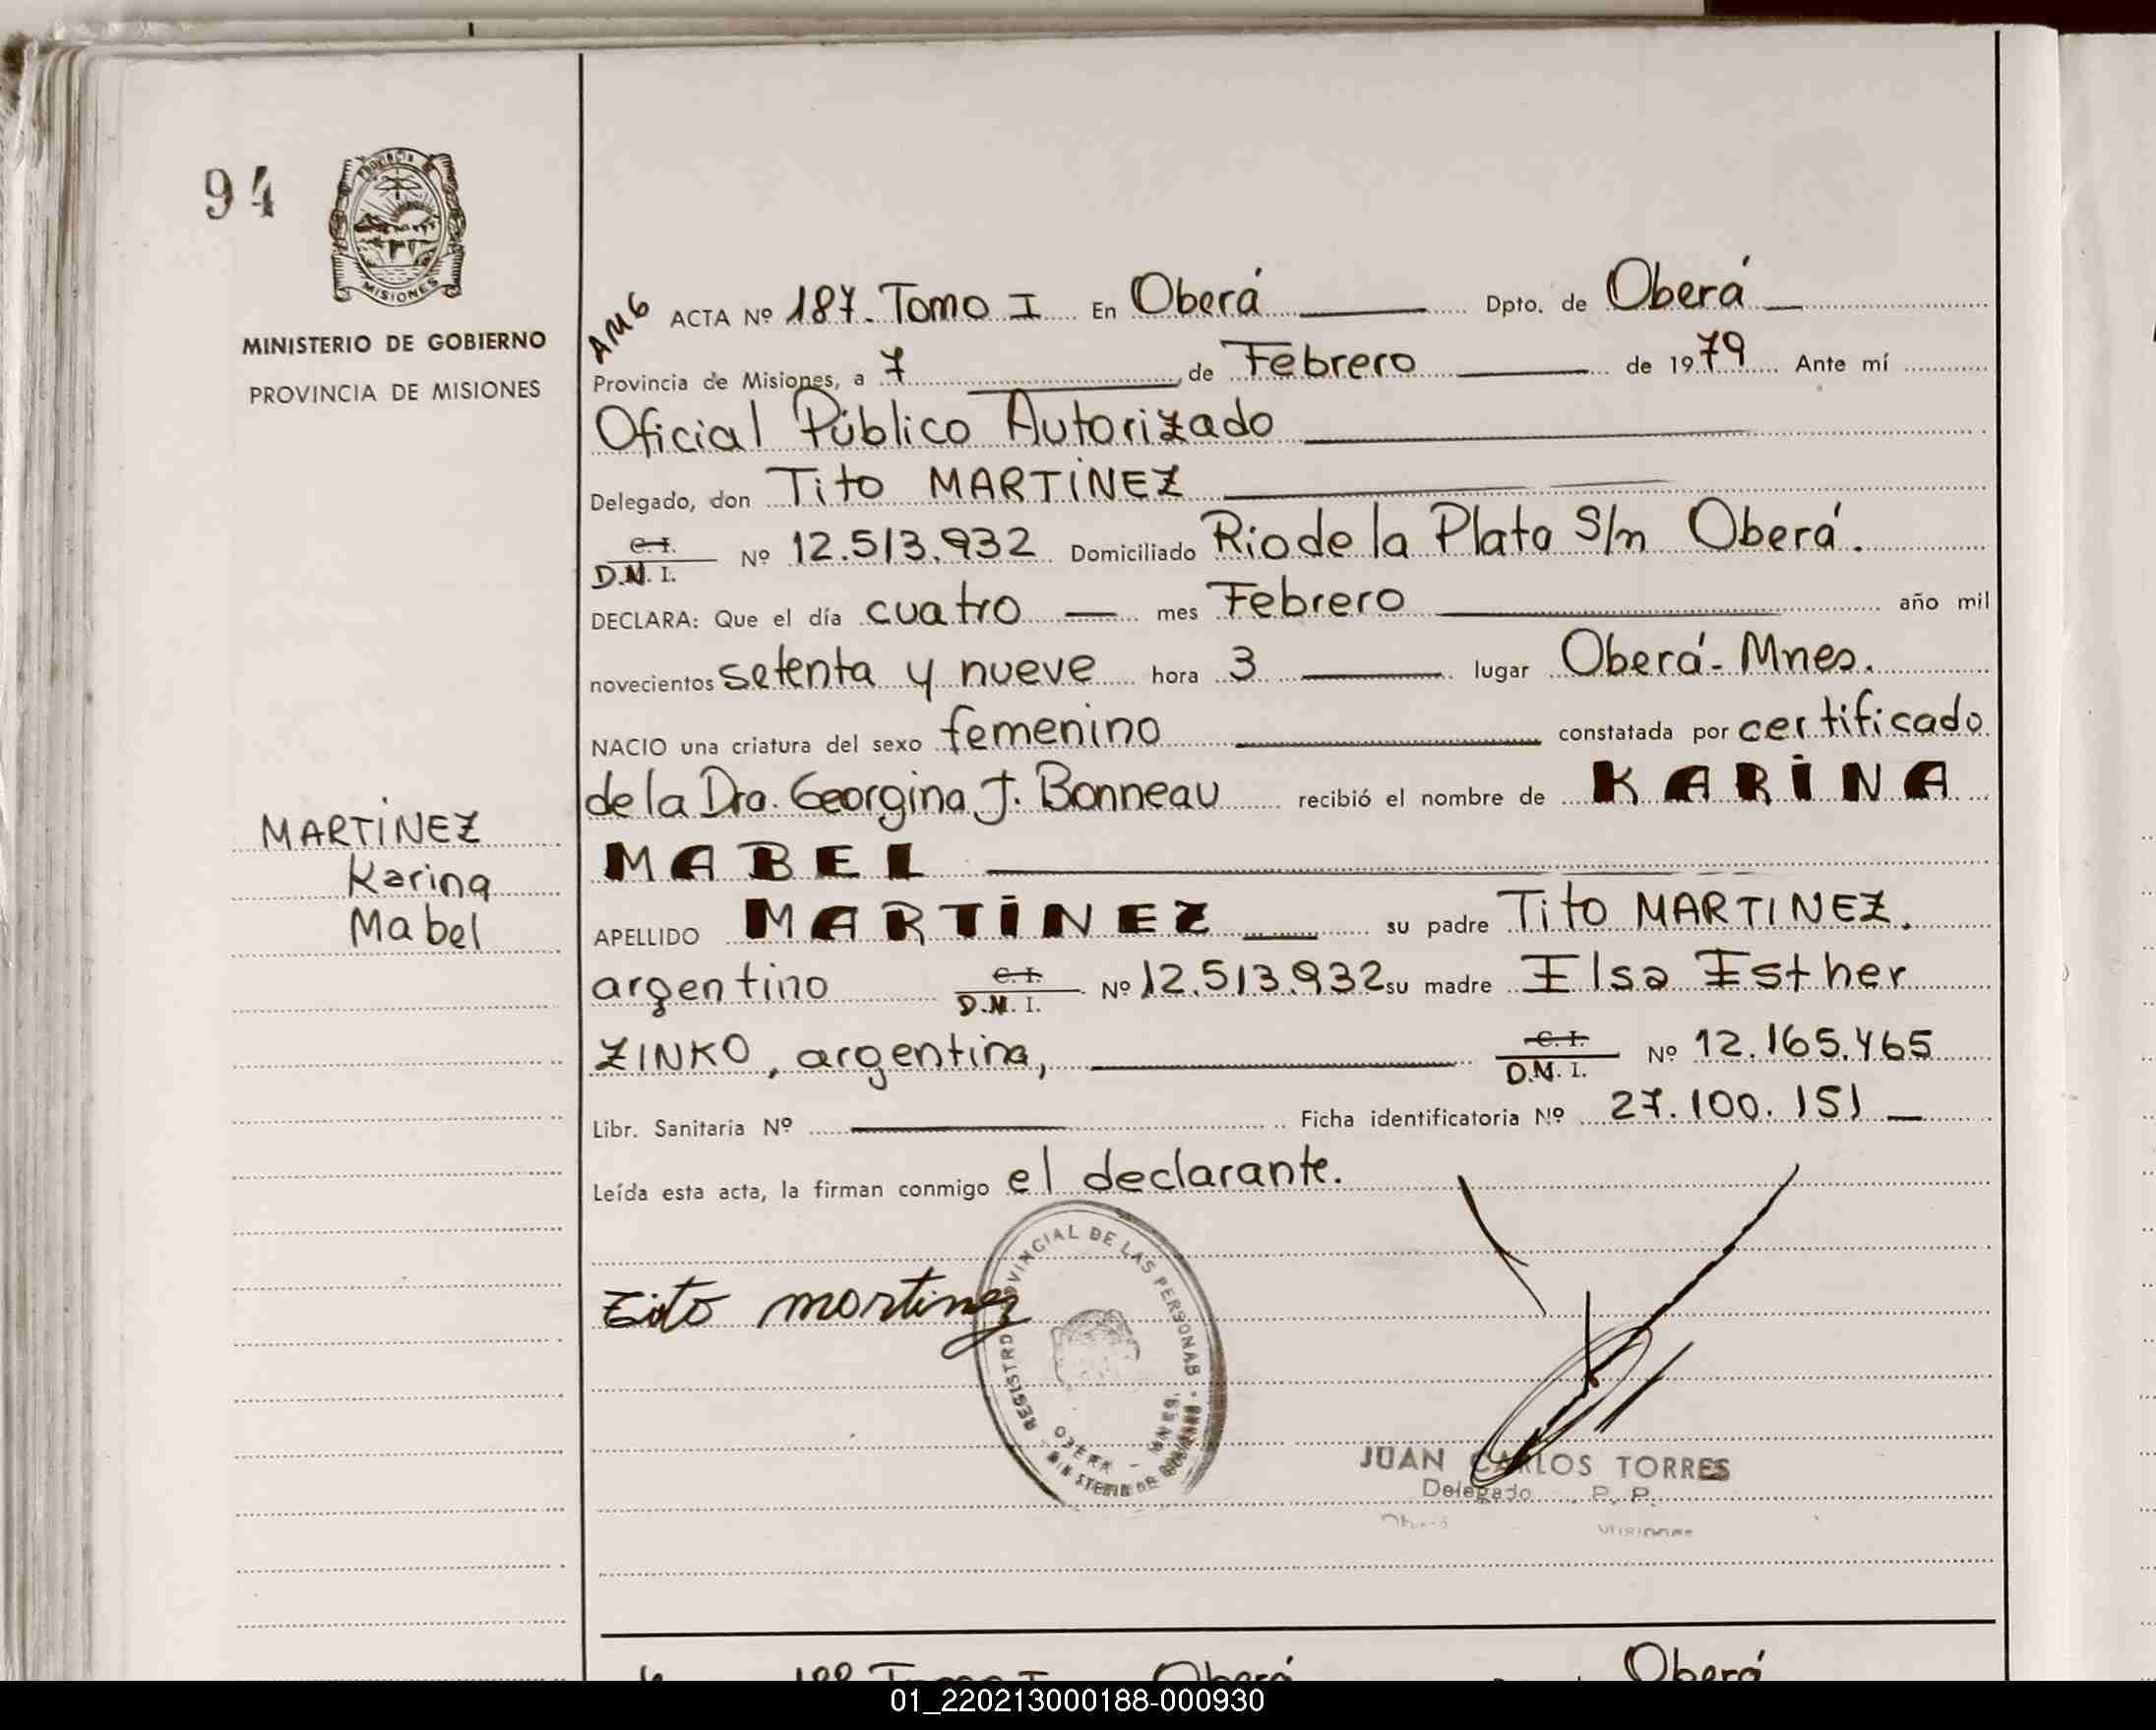 94
PROVINCIA
MISIONES
MINISTERIO DE GOBIERNO
PROVINCIA DE MISIONES
MARTINEZ
Karina
Mabel
ACTA Nº 187. Tomo I En Oberá Dpto. de Oberá
Provincia de Misiones, a 7 de Febrero de 1979 Ante mí
Oficial Público Autorizado
Delegado, don Tito MARTINEZ
C.I. D.N.I. Nº 12.513.932 Domiciliado Rio de la Plata S/n Oberá.
DECLARA: Que el día cuatro mes Febrero año mil
novecientos setenta y nueve hora 3 lugar Oberá - Mnes.
NACIO una criatura del sexo femenino constatada por certificado
de la Dra. Georgina J. Bonneau recibió el nombre de KARINA
MABEL
APELLIDO MARTINEZ su padre Tito MARTINEZ.
argentino C.I. D.N.I. Nº 12.513.932 su madre Elsa Esther
ZINKO, argentina, C.I. D.N.I. Nº 12.165.465
Libr. Sanitaria Nº Ficha identificatoria Nº 27.100.151
Leída esta acta, la firman conmigo el declarante.
Tito martinez
REGISTRO PROVINCIAL DE LAS PERSONAS
OBERA - MNES.
JUAN CARLOS TORRES
Delegado R. P.
Misiones
188 Tomo I Oberá Oberá
01_220213000188-000930